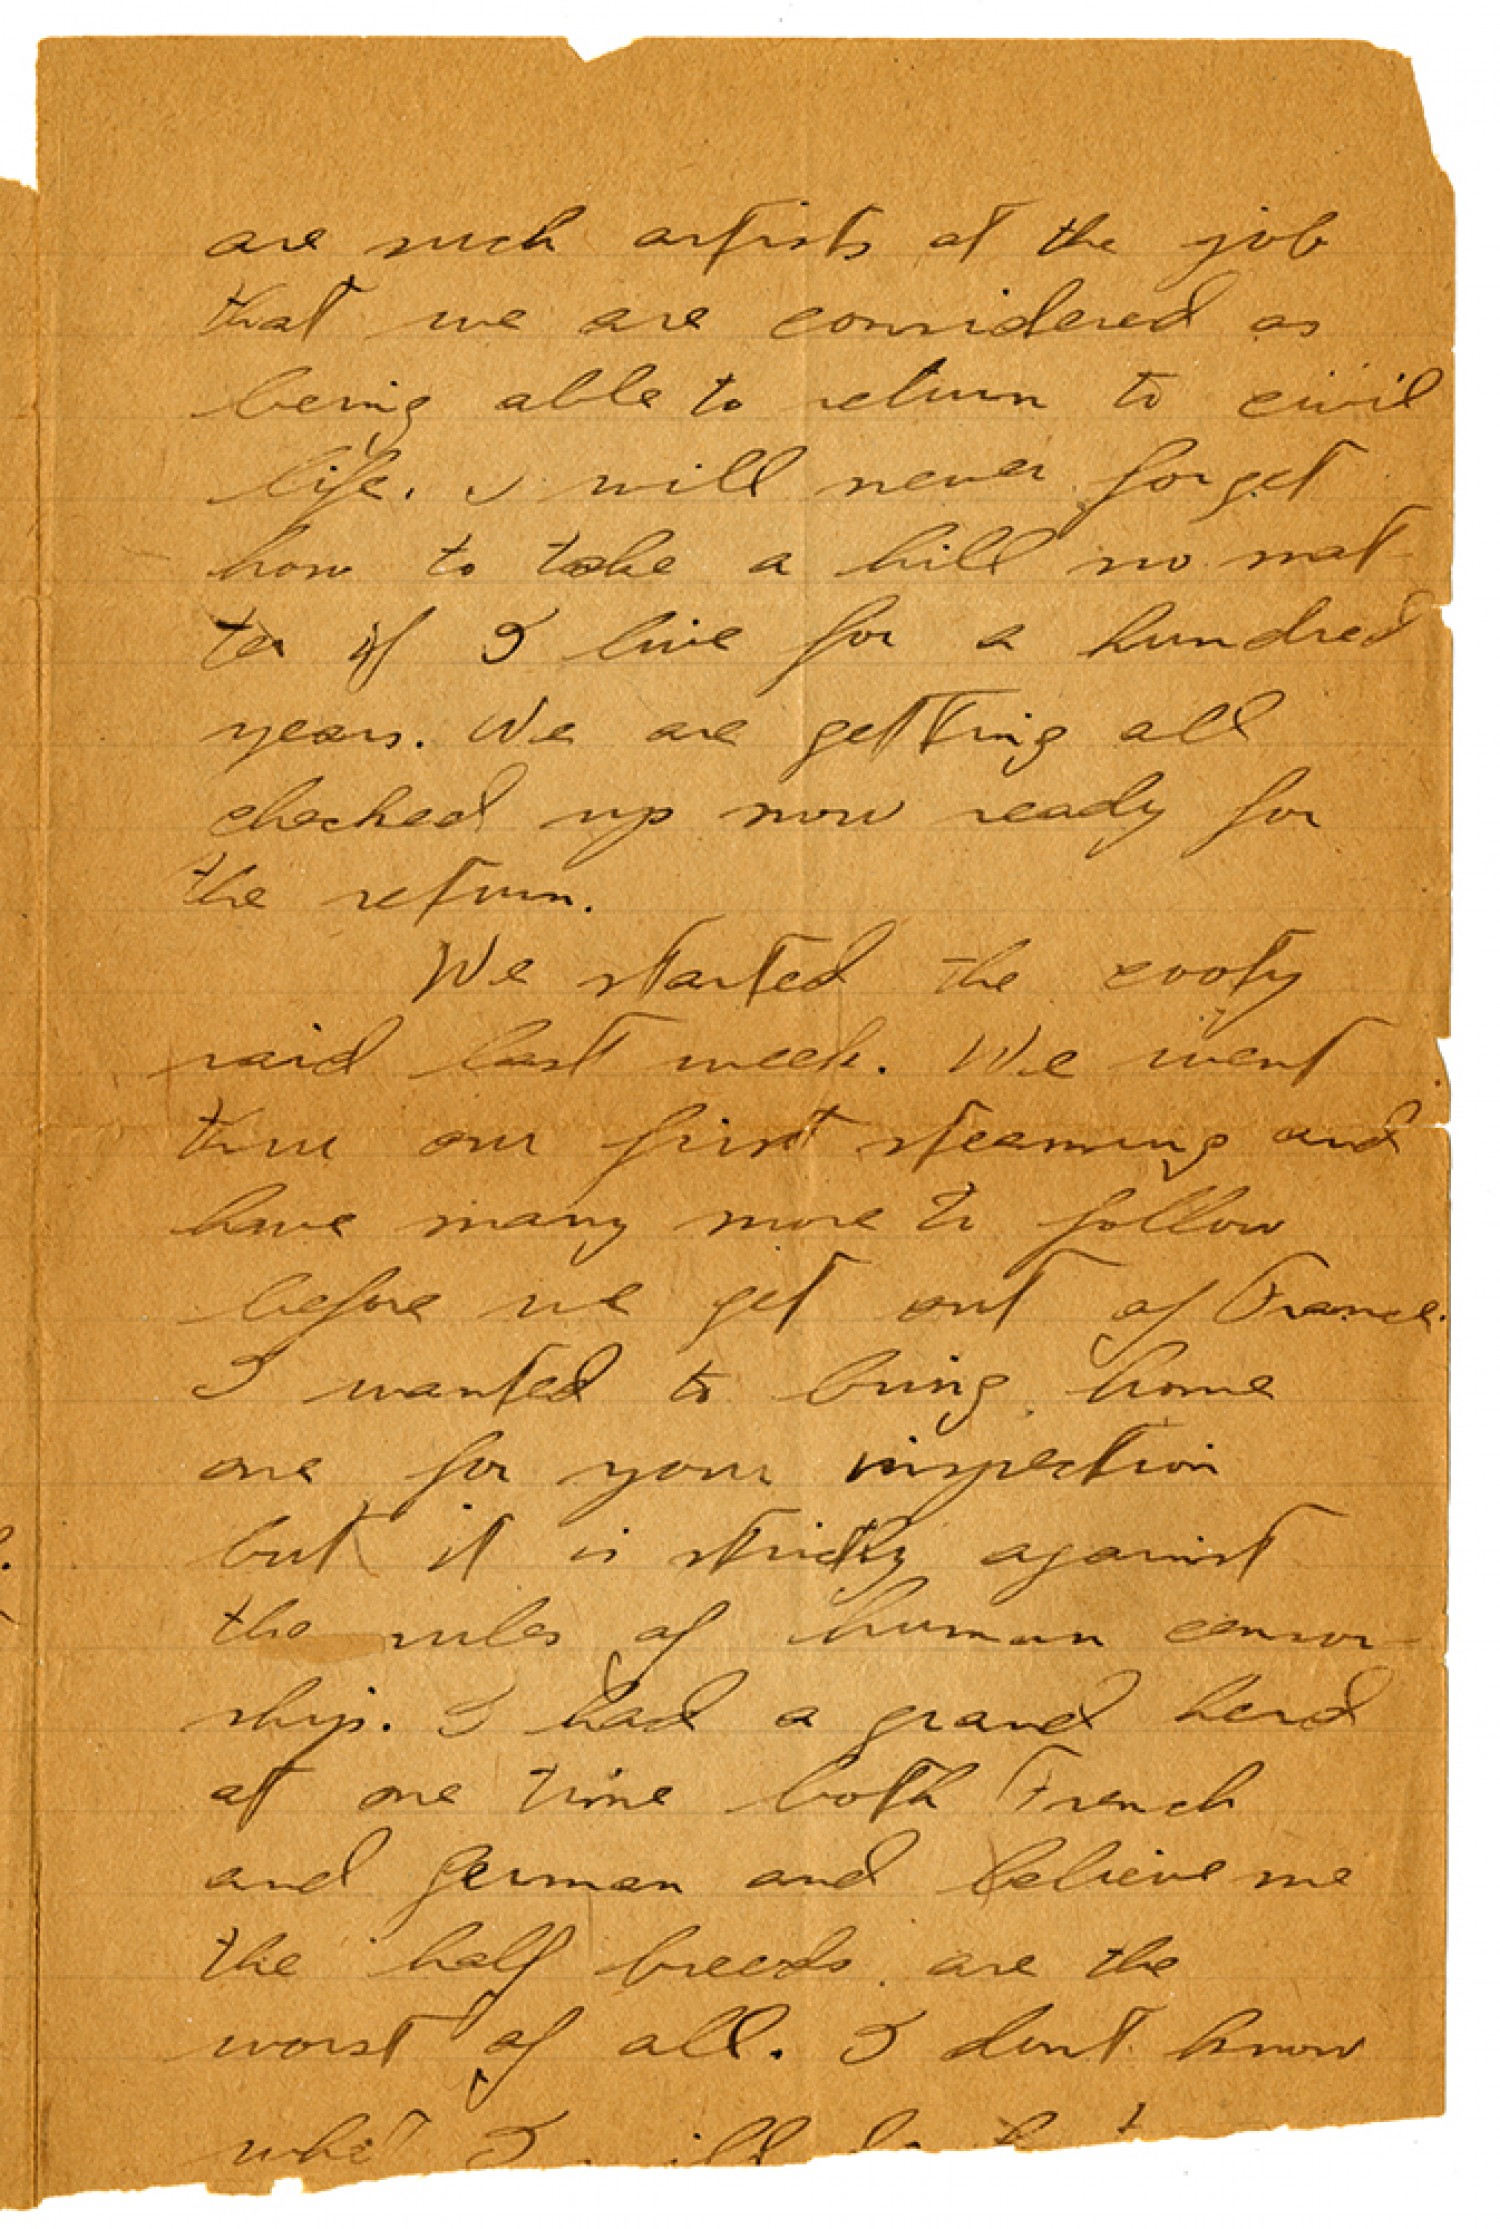 are such artists at the job
that we are considered as
being able to return to civil
life. I will never forget
how to take a hill no mat-
ter if I live for a hundred
years. We are getting all
checked up now ready for
the return.
We started the cooty
raid last week. We went
thru our first steaming and
have many more to follow
before we get out of France.
I wanted to bring home
one for your inspection
but it is strictly against
the rules of human censor-
ship. I had a grand herd
at one time both French
and German and believe me
the half breeds are the
worst of all. I dont know
what I will